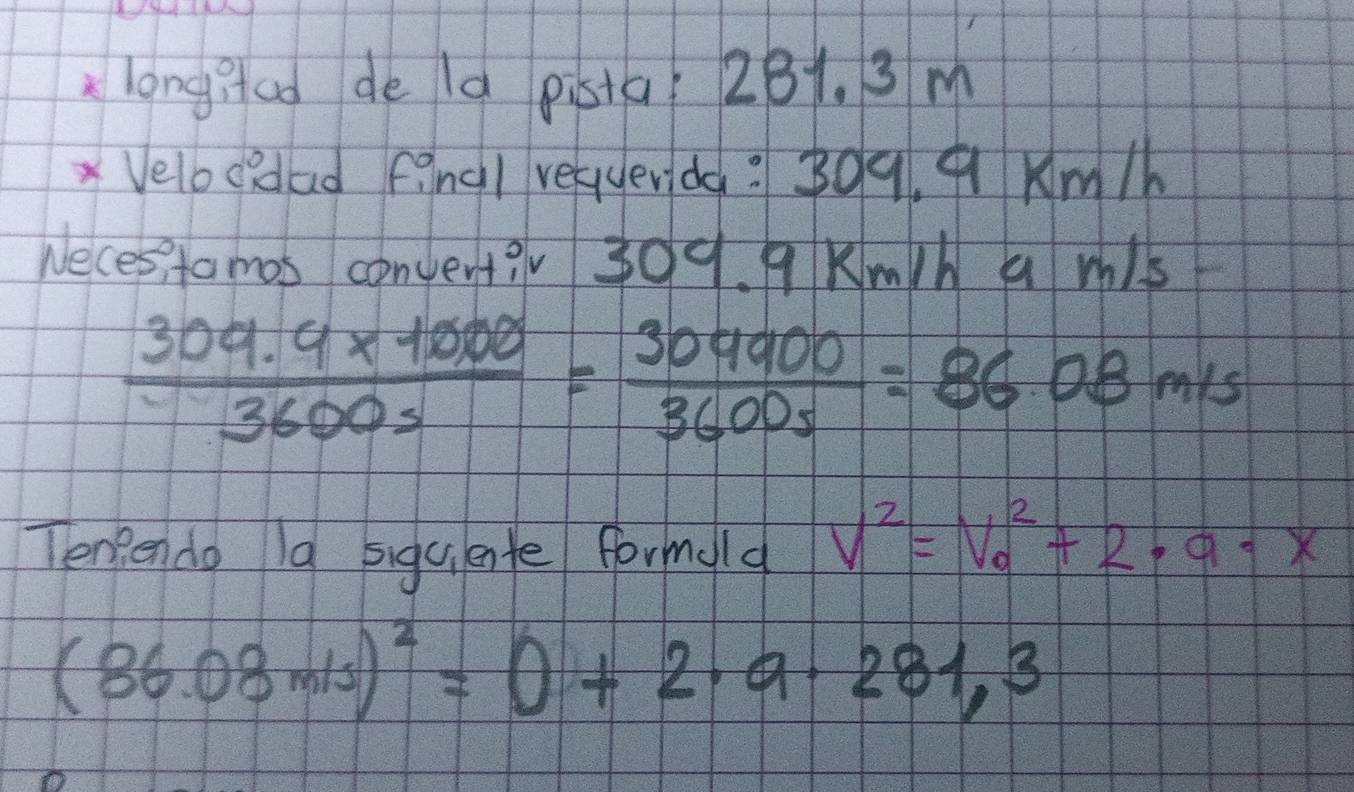 * longitud de la pista: 281.3 m
* Velocidad final requerida: 309.9 Km/h
Necesitamos convertir 309.9 Km/h a m/s
309.9 x 1000 / 3600s = 309900 / 3600s = 86.08 m/s
Teniendo la siguiente formula V² = V₀² + 2 • a • x
(86.08 m/s)² = 0 + 2 · a · 281,3